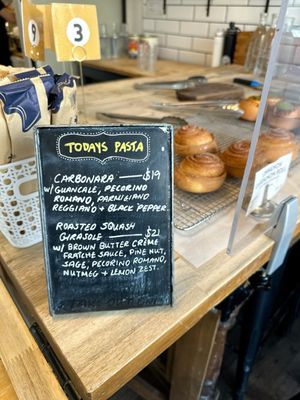 9
3
TODAYS PASTA
CARBONARA — $19
W/ GUANCALE, PECORINO
ROMANO, PARMIGIANO
REGGIANO + BLACK PEPPER.
ROASTED SQUASH
GIRASOLE — $21
W/ BROWN BUTTER CRÈME
FRAÎCHE SAUCE, PINE NUT,
SAGE, PECORINO ROMANO,
NUTMEG + LEMON ZEST.